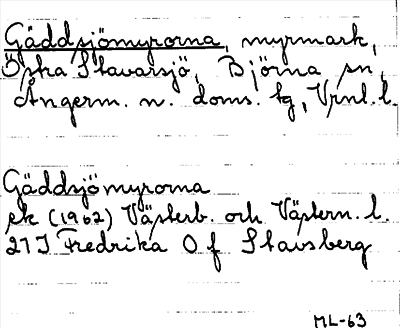 Gäddsjömyrorna, myrmark,
Östra Stavarsjö, Björna sn,
Ångerm. n. doms. tg, Vrnl. l.
Gäddsjömyrorna
ek (1962) Västerb. och Västern. l.
21 I Fredrika O f Stavsberg
ML-63